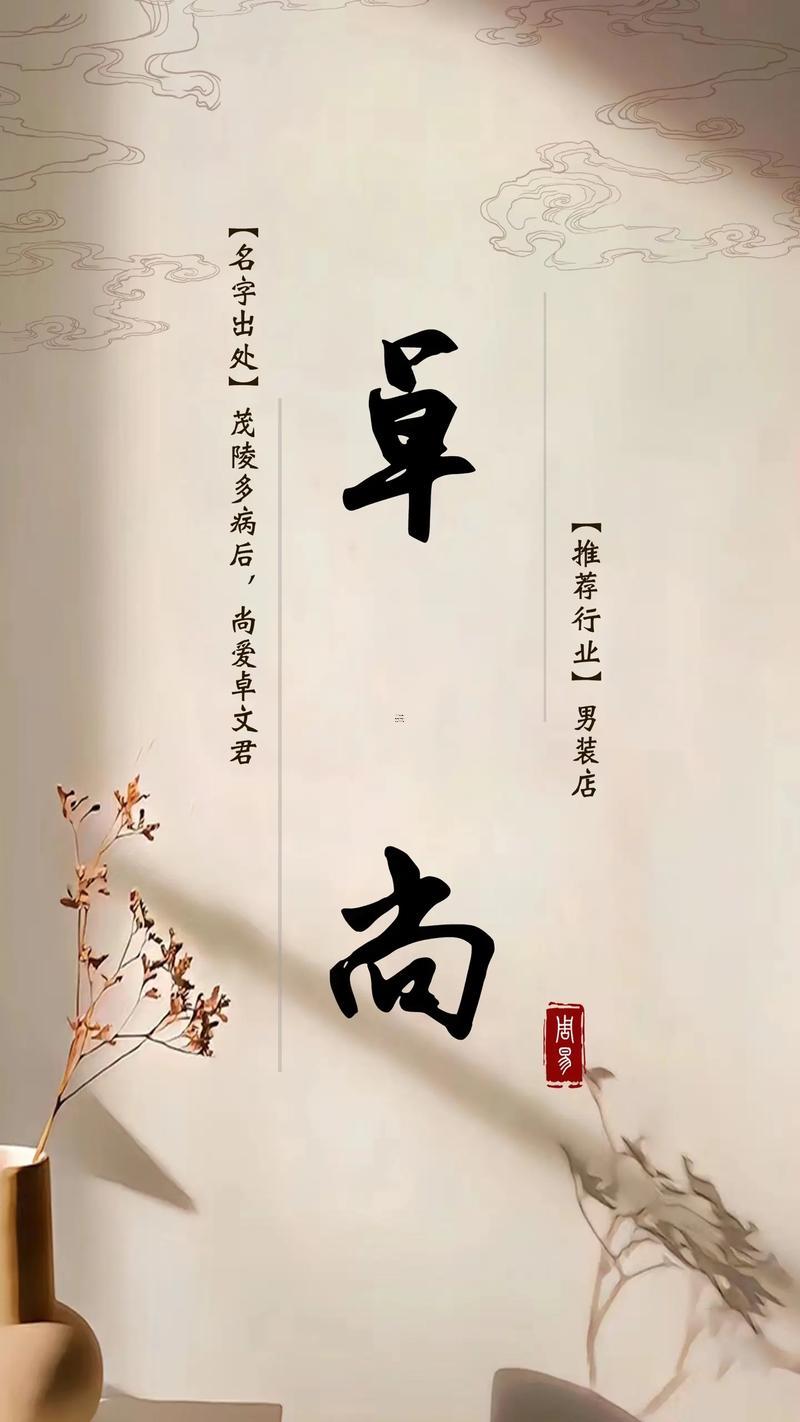 【推荐行业】男装店
卓尚
【名字出处】茂陵多病后，尚爱卓文君
周易